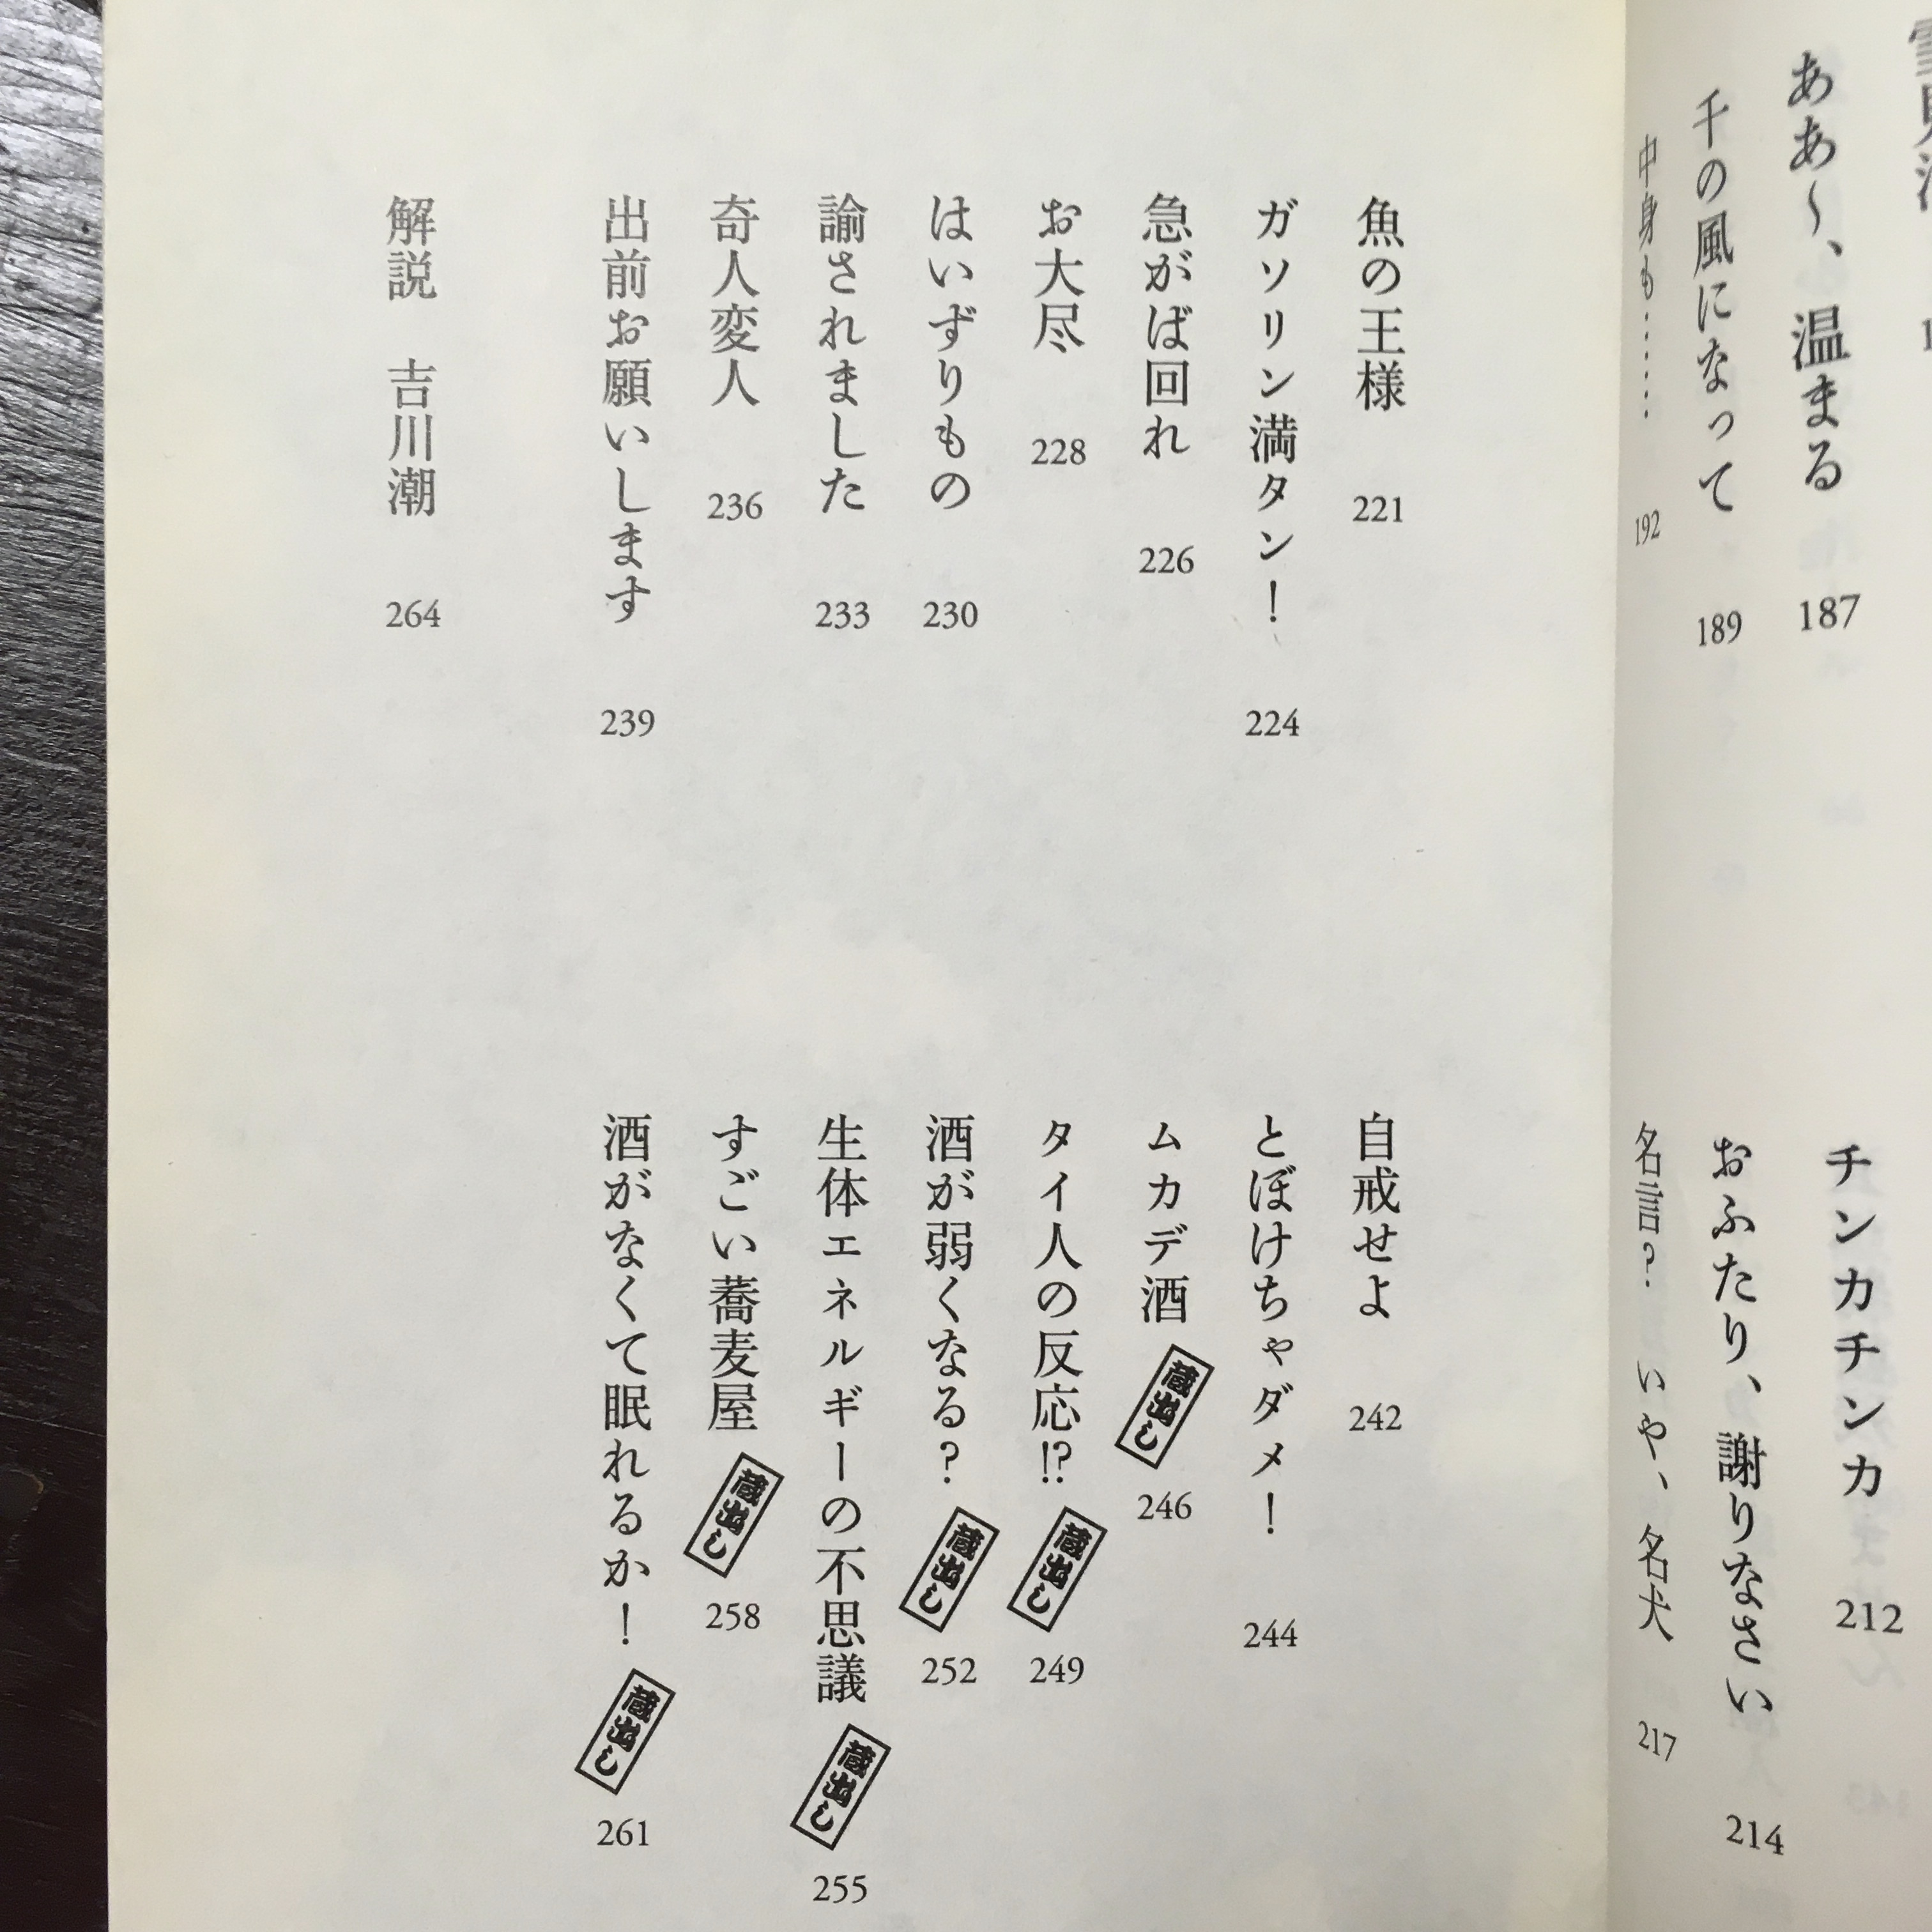 ああ〜、温まる 187
千の風になって 189
中身も…… 192
チンカチンカ 212
おふたり、謝りなさい 214
名言? いや、名犬 217
魚の王様 221
ガソリン満タン! 224
急がば回れ 226
お大尽 228
はいずりもの 230
諭されました 233
奇人変人 236
出前お願いします 239
解説 吉川潮 264
自戒せよ 242
とぼけちゃダメ! 244
ムカデ酒 蔵出し 246
タイ人の反応!? 蔵出し 249
酒が弱くなる? 蔵出し 252
生体エネルギーの不思議 蔵出し 255
すごい蕎麦屋 蔵出し 258
酒がなくて眠れるか! 蔵出し 261